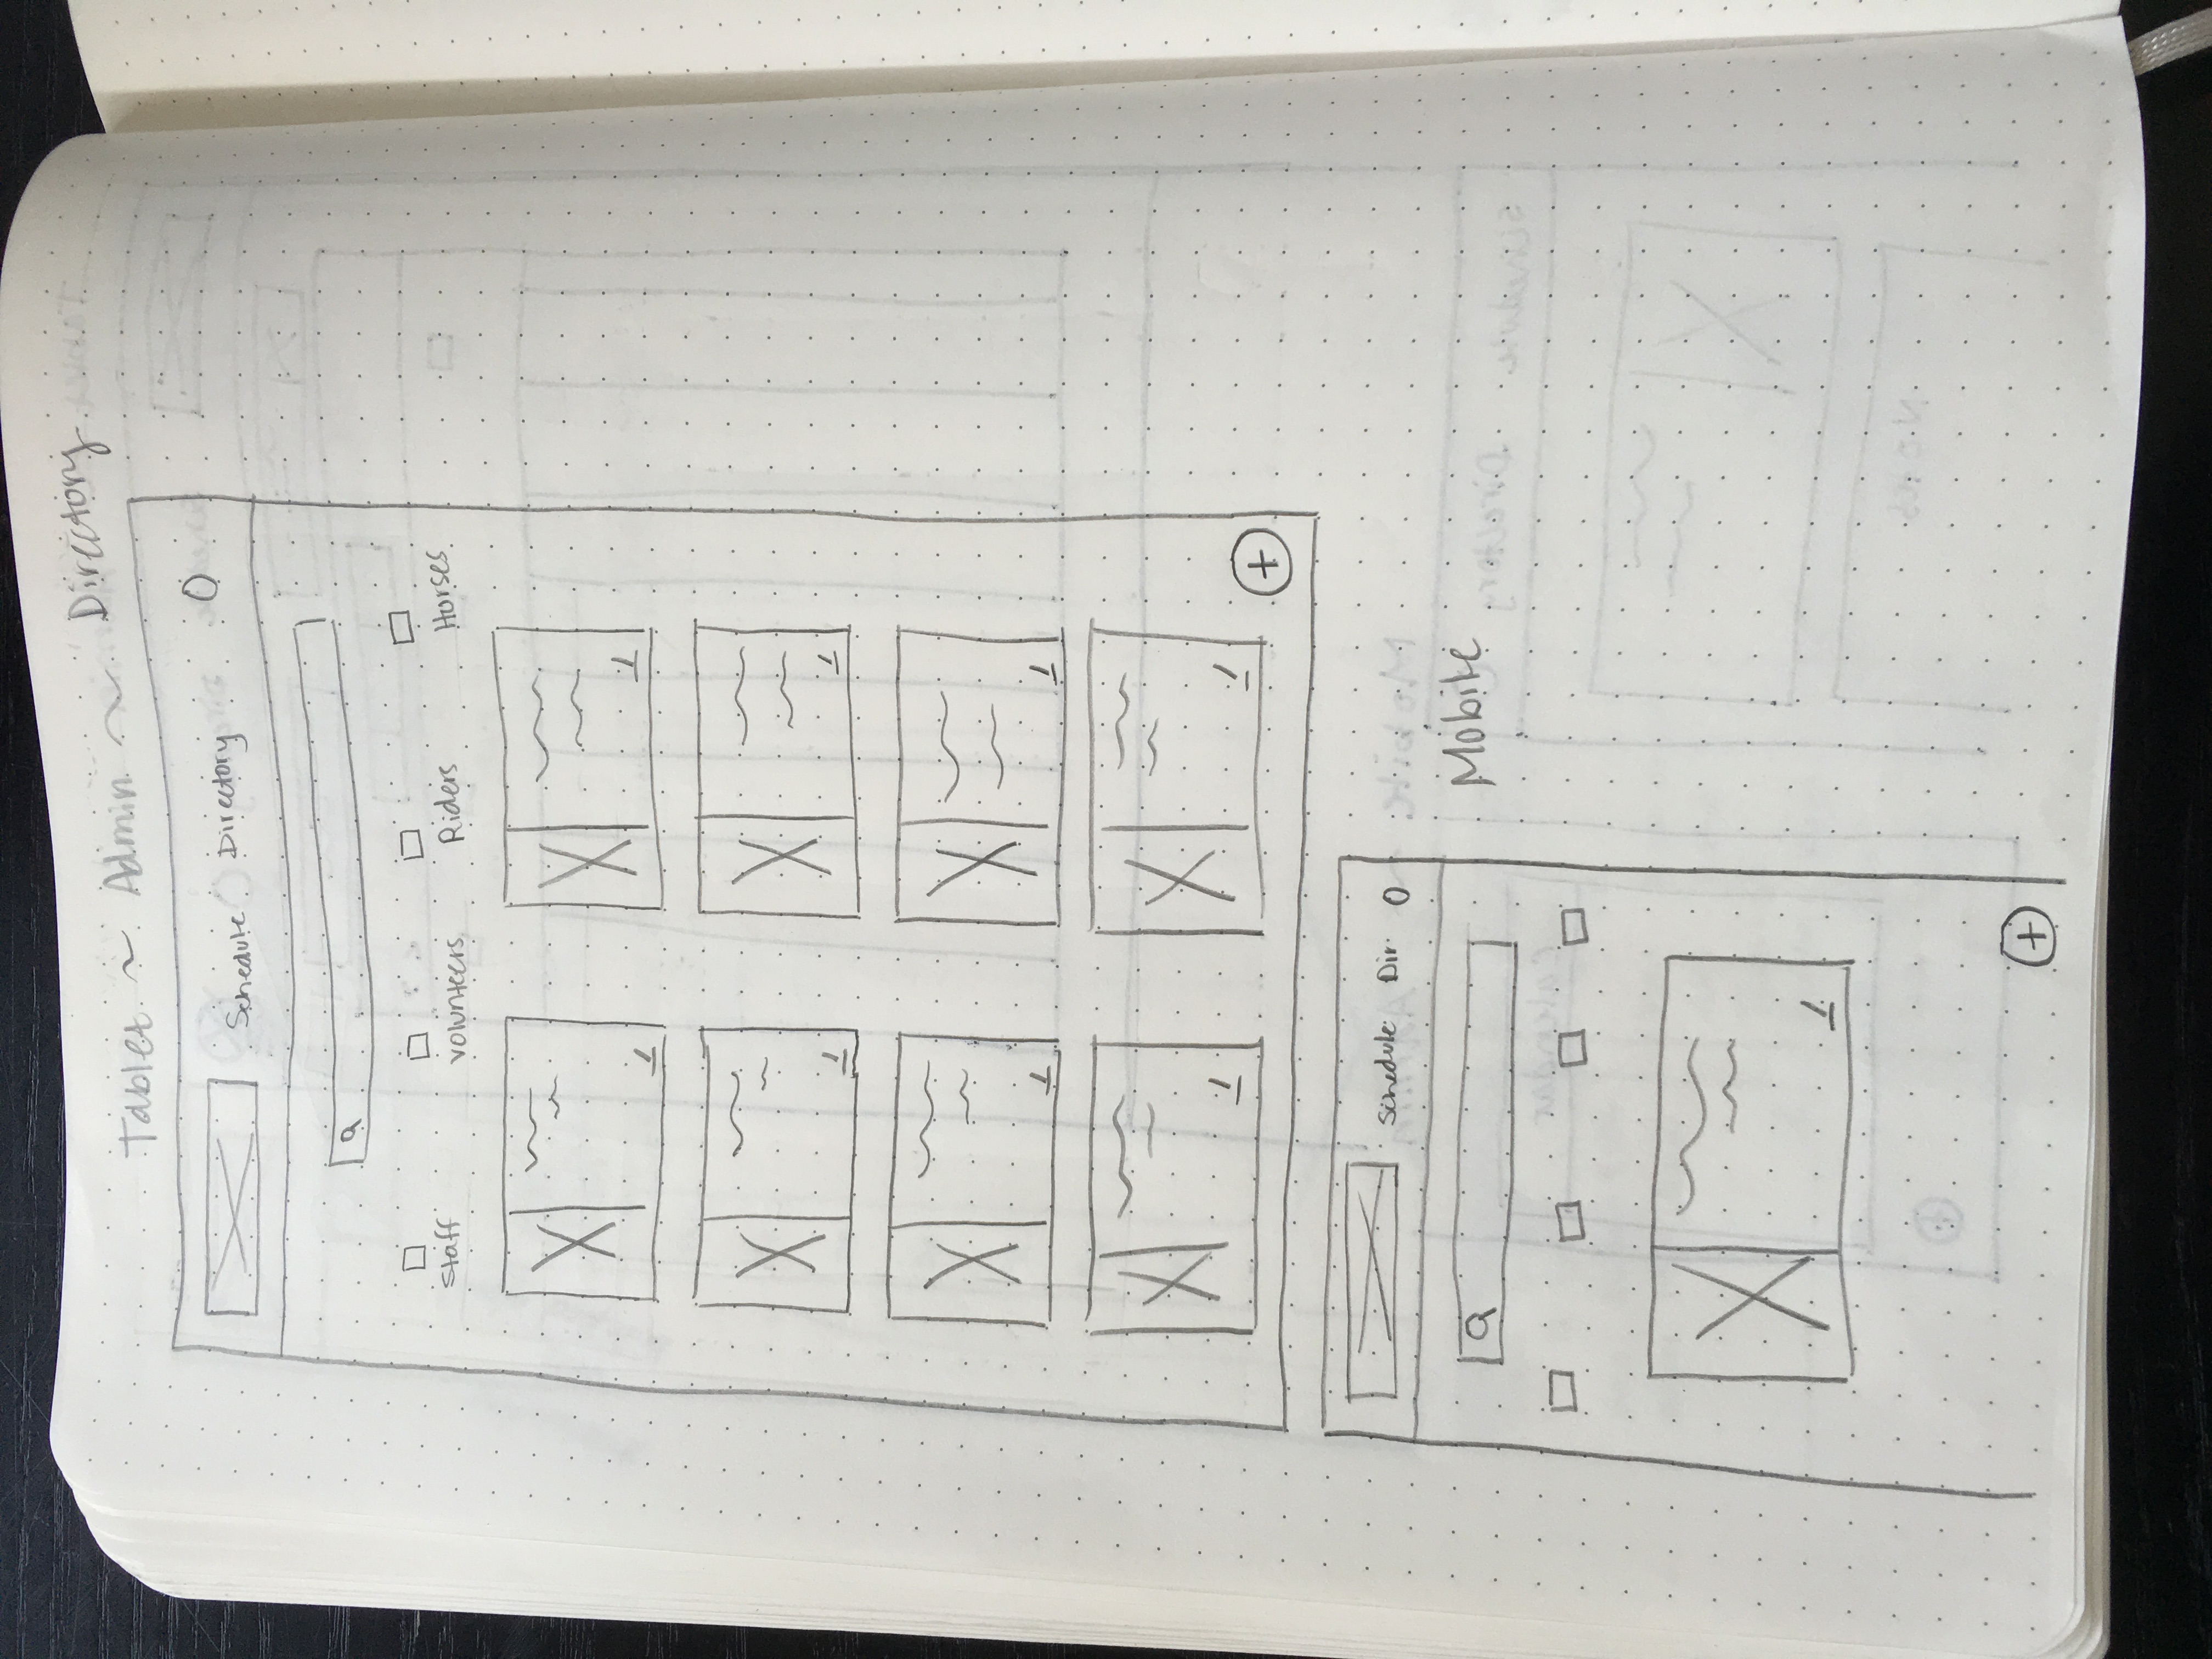 Tablet ~ Admin ~ Directory
Schedule Directory
Staff volunteers Riders Horses
Schedule Dir.
Mobile